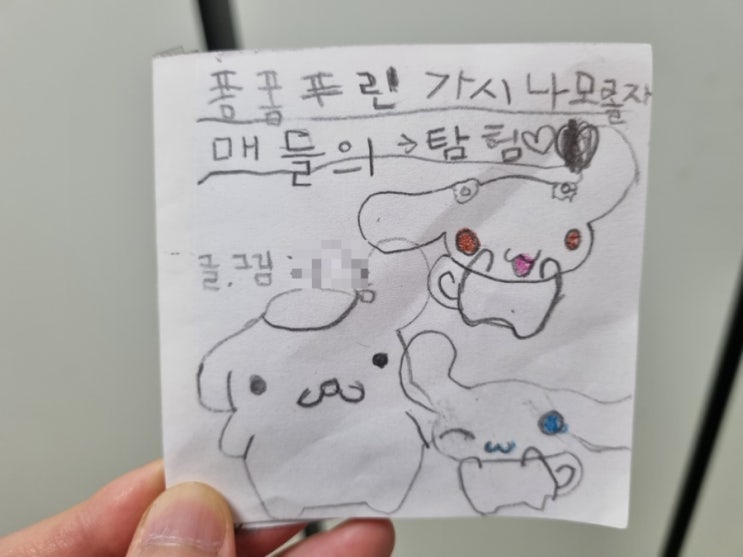 폼폼푸린 가시나모롤자
매들의 → 탐험♡
글.그림